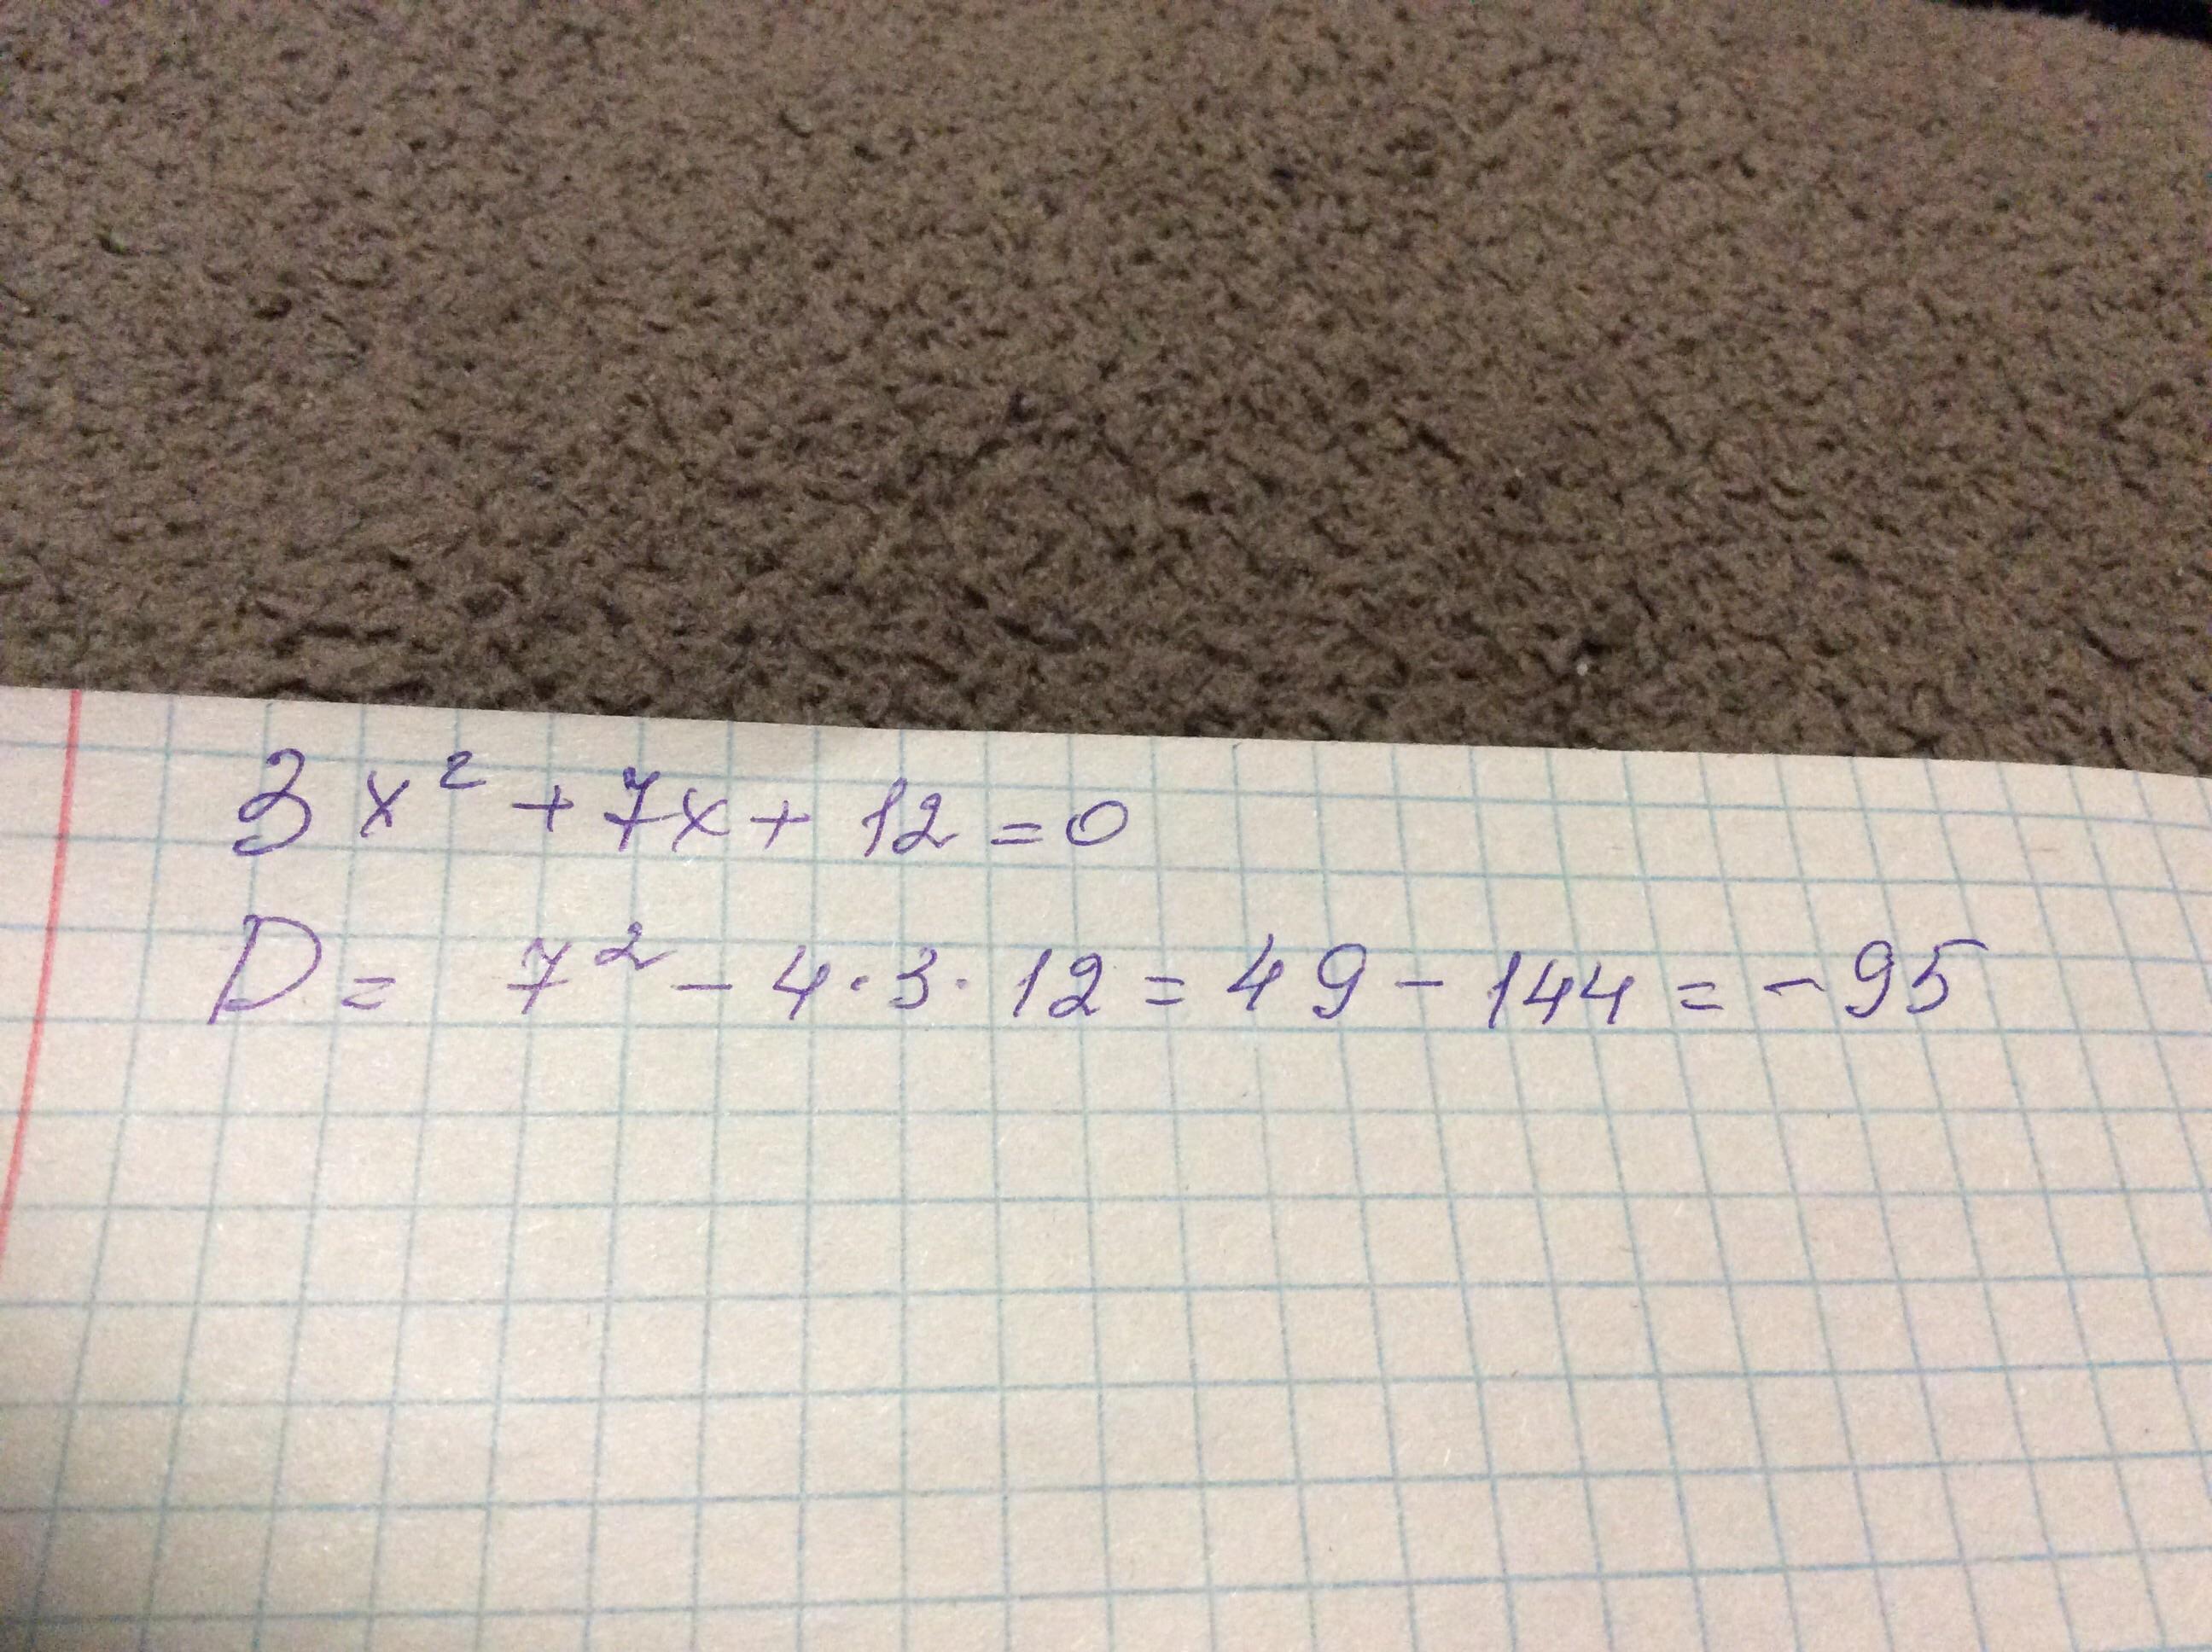 3x² + 7x + 12 = 0
D = 7² - 4 · 3 · 12 = 49 - 144 = - 95